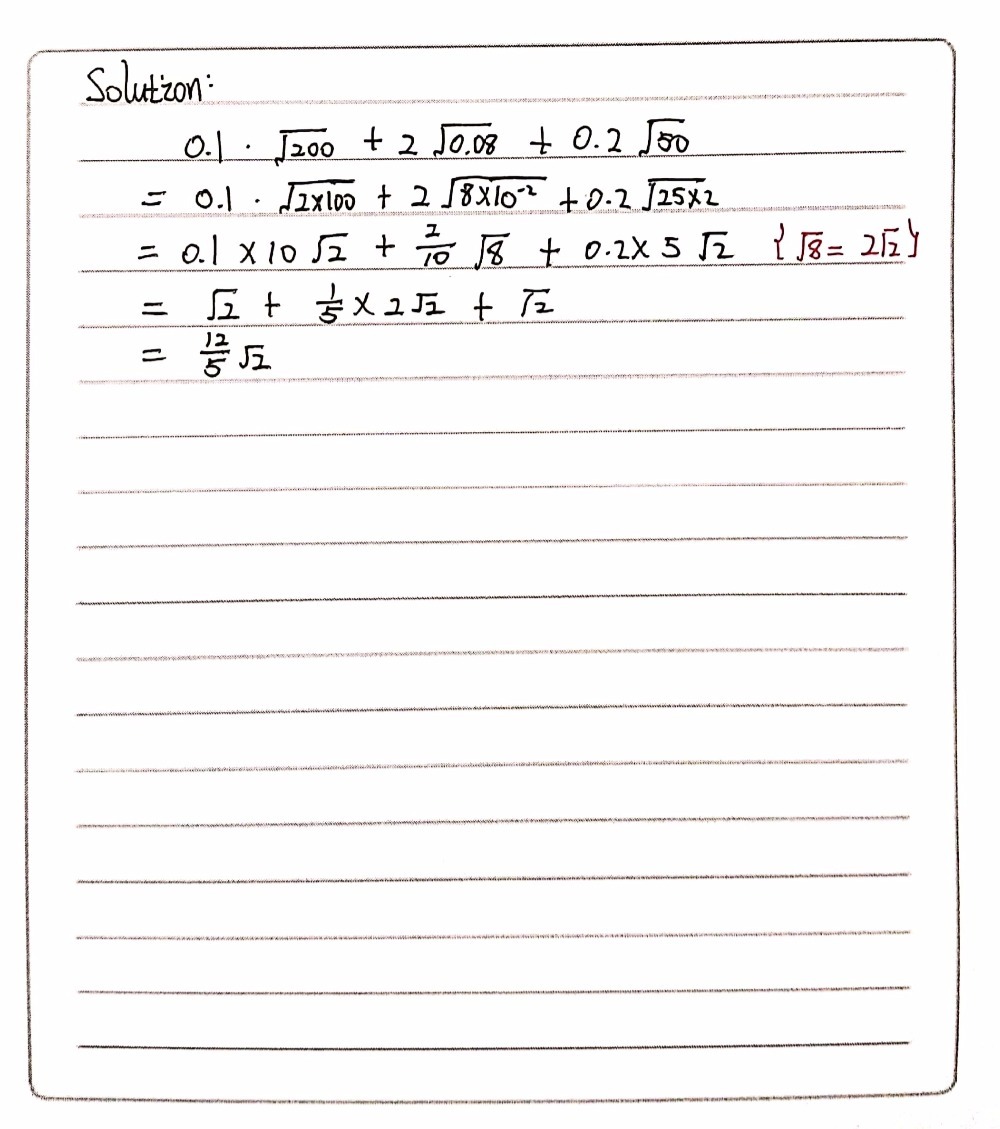 Solution:
0.1 · √200 + 2 √0.08 + 0.2 √50
= 0.1 · √2×100 + 2 √8×10⁻² + 0.2 √25×2
= 0.1 × 10 √2 + 2/10 √8 + 0.2 × 5 √2 {√8 = 2√2}
= √2 + 1/5 × 2√2 + √2
= 12/5 √2